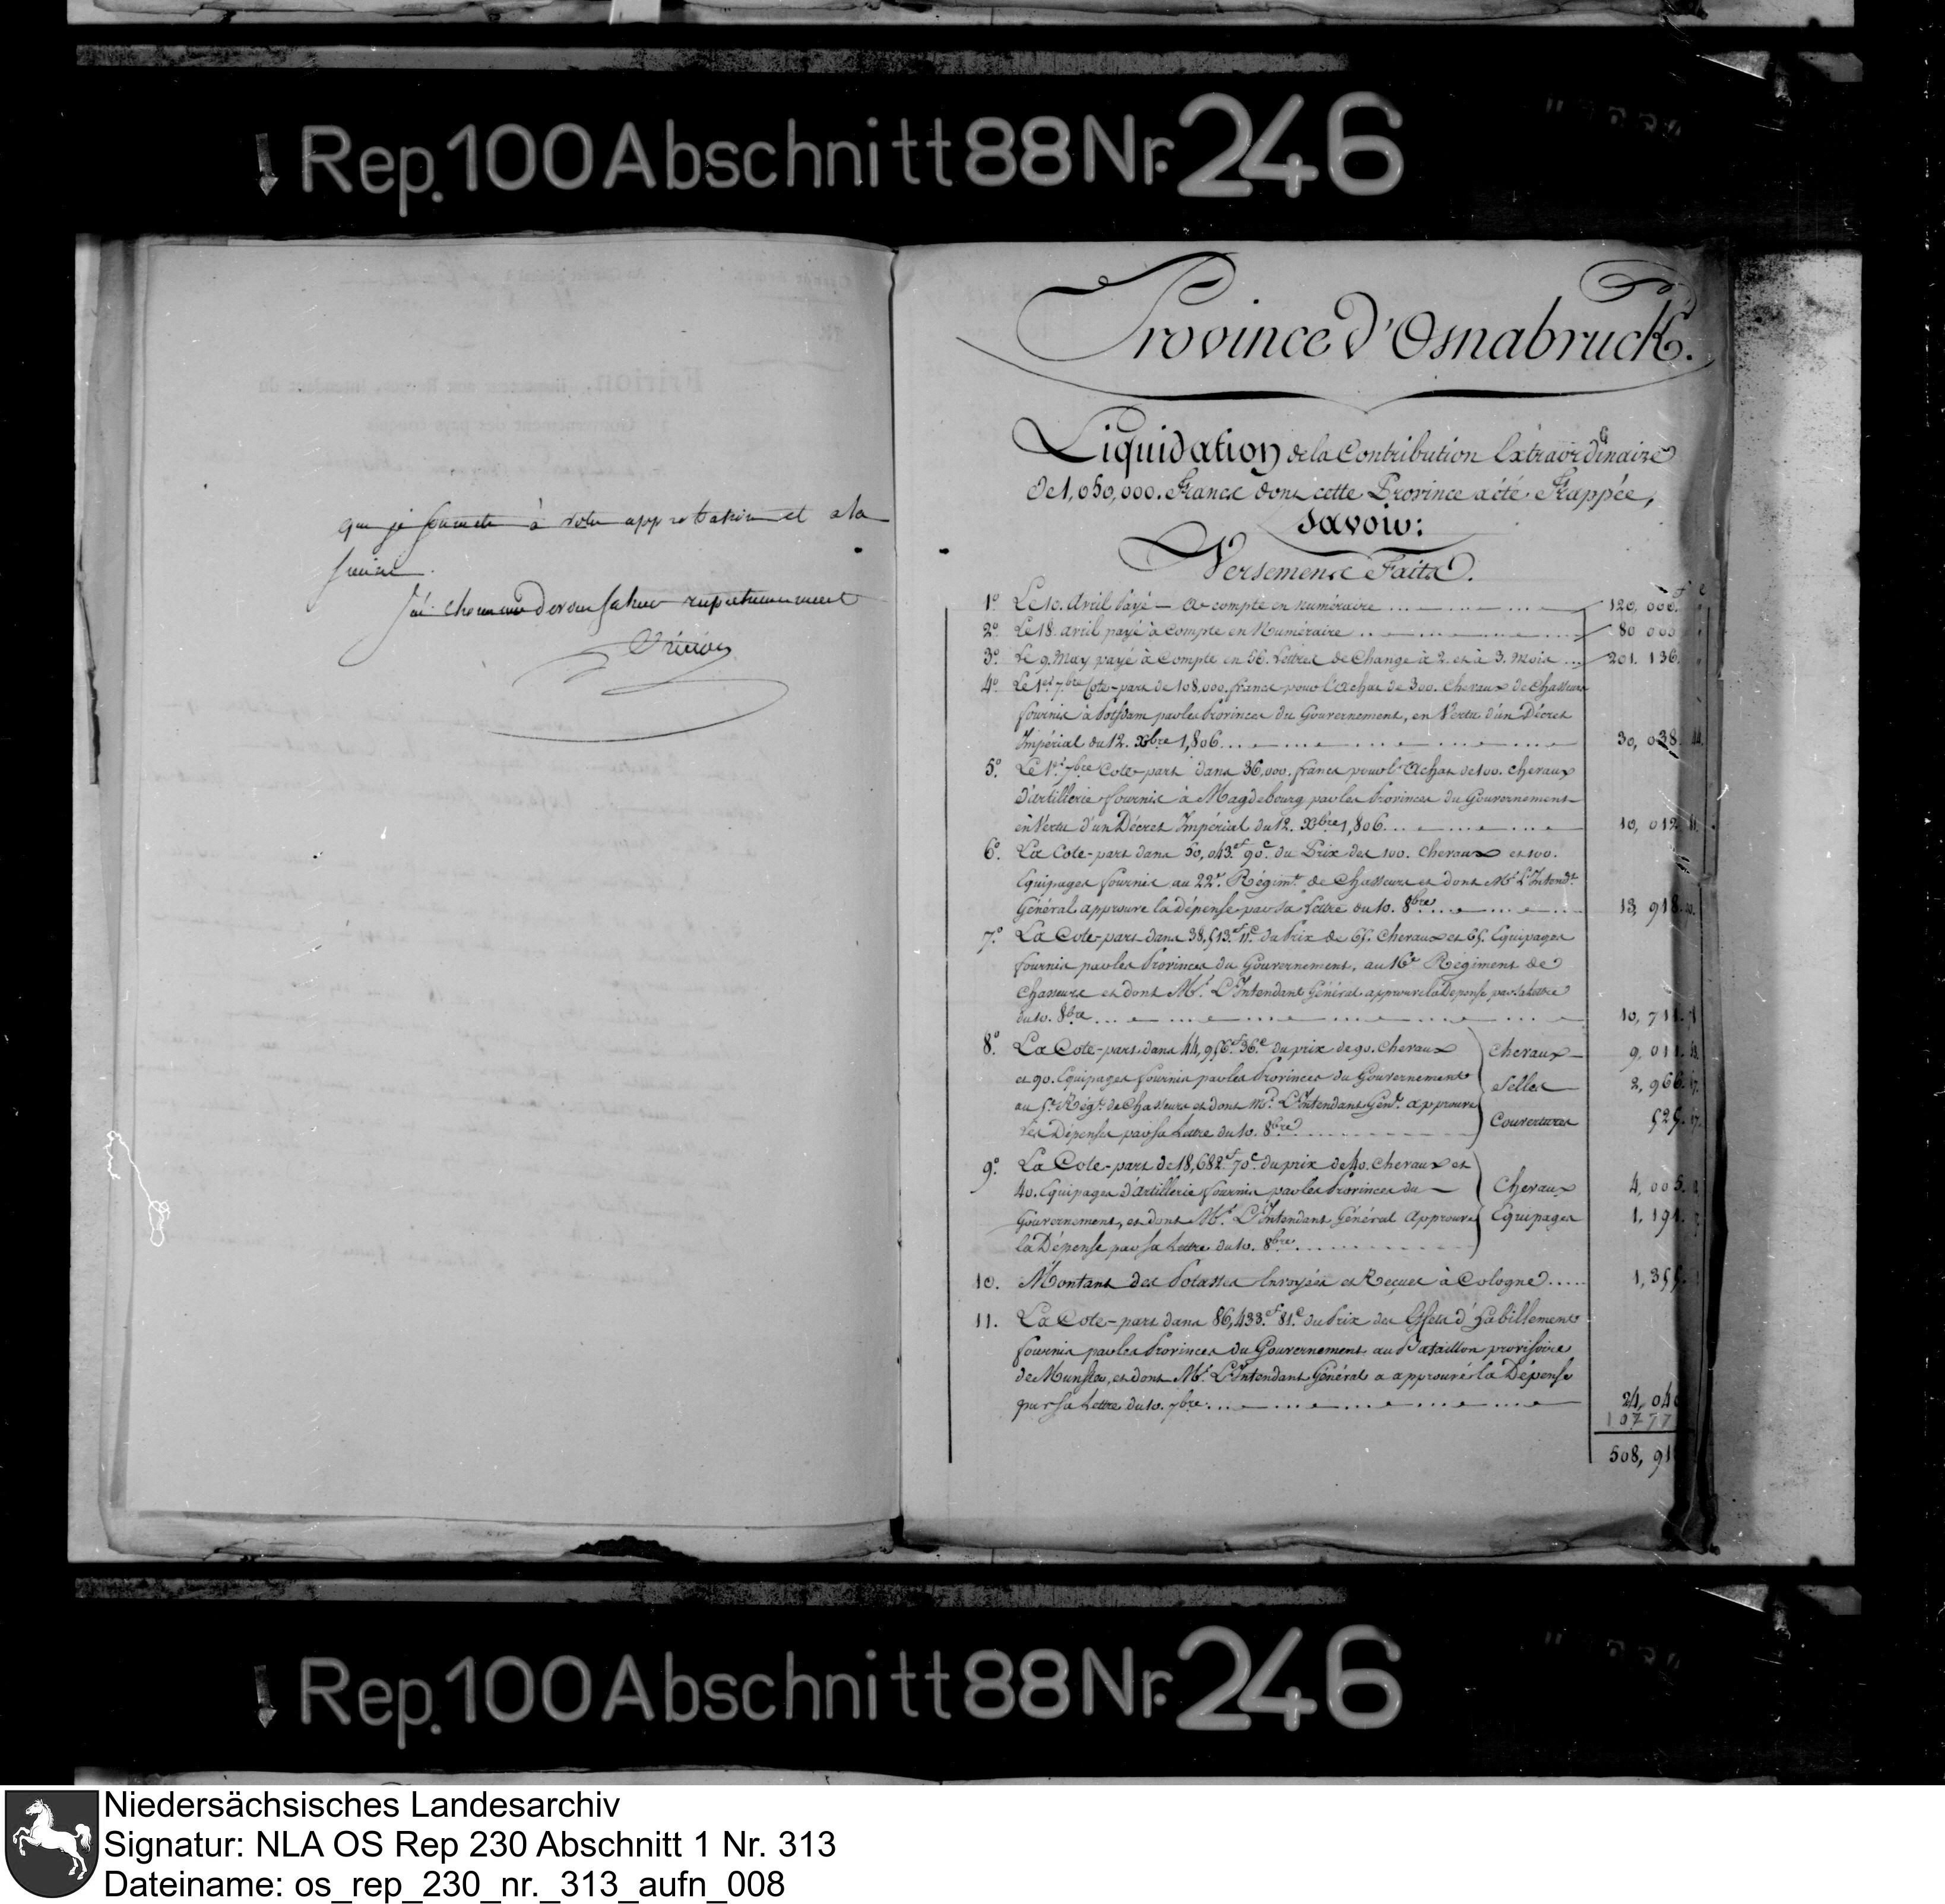 Rep. 100 Abschnitt 88 Nr. 246
que je soumets à votre approbation et à la
J'ai l'honneur de vous saluer respectueusement
Fririon
Province d'Osnabruck.
Liquidation de la Contribution Extraordinaire
De 1,050,000. Francs dont cette Province a été Frappée,
Savoir:
Versements Faits.
f c
1.º Le 10. Avril Payé - à compte en numéraire ... 120,000.
2.º Le 18. avril payé à Compte en Numéraire ... 80 000
3.º Le 9. May payé à Compte en 56. Lettres de Change à 2. et à 3. mois ... 201. 136.
4.º Le 1.er 7.bre Cote-part de 108,000. francs pour l'achat de 300. Chevaux de Chasseurs
fournis à Potsdam par les Provinces du Gouvernement, en Vertu d'un Décret
Impérial du 12. Xbre 1,806 ... 30, 038. 44.
5.º Le 1.er 7bre Cote-part dans 36,000. francs pour l'Achat de 100. chevaux
d'artillerie fournis à Magdebourg par les Provinces du Gouvernement
en Vertu d'un Décret Impérial du 12. Xbre 1,806 ... 10, 012
6.º La Cote-part dans 50,043.f 90.c du Prix des 100. chevaux et 100.
Equipages fournis au 22.e Régim.t de Chasseurs et dont M.r L'Intend.t
Général approuve la dépense par sa Lettre du 10. 8bre ... 13, 918.
7.º La Cote-part dans 38,513.f 11.c du Prix de 65. Chevaux et 65. Equipages
fournis par les Provinces du Gouvernement, au 16.e Régiment de
Chasseurs et dont M.r L'Intendant Général approuve la Dépense par sa Lettre
du 10. 8bre ... 10, 711.
8.º La Cote-part dans 44,956.f 36.c du prix de 90. Chevaux
et 90. Equipages fournis par les Provinces du Gouvernement
au 5.e Rég.t de Chasseurs et dont M.r L'Intendant Gén.l approuve
les Dépenses par sa Lettre du 10. 8bre
Chevaux 9, 011.
Selles 2, 966.
Couvertures 525.
9.º La Cote-part de 18,682.f 70.c du prix de 40. Chevaux et
40. Equipages d'artillerie fournis par les Provinces du
Gouvernement, et dont M.r L'Intendant Général Approuve
la Dépense par sa Lettre du 10. 8bre
Chevaux 4, 005.
Equipages 1, 191.
10. Montant des Potasses Envoyées et Reçues à Cologne ..... 1, 355.
11. La Cote-part dans 86,433.f 81.c du Prix des Effets d'habillement
fournis par les Provinces du Gouvernement au Bataillon provisoire
de Munster, et dont M.r L'Intendant Général a approuvé la Dépense
par sa Lettre du 10. 7bre ... 24, 04
10777
508, 91
Rep. 100 Abschnitt 88 Nr. 246
Niedersächsisches Landesarchiv
Signatur: NLA OS Rep 230 Abschnitt 1 Nr. 313
Dateiname: os_rep_230_nr._313_aufn_008